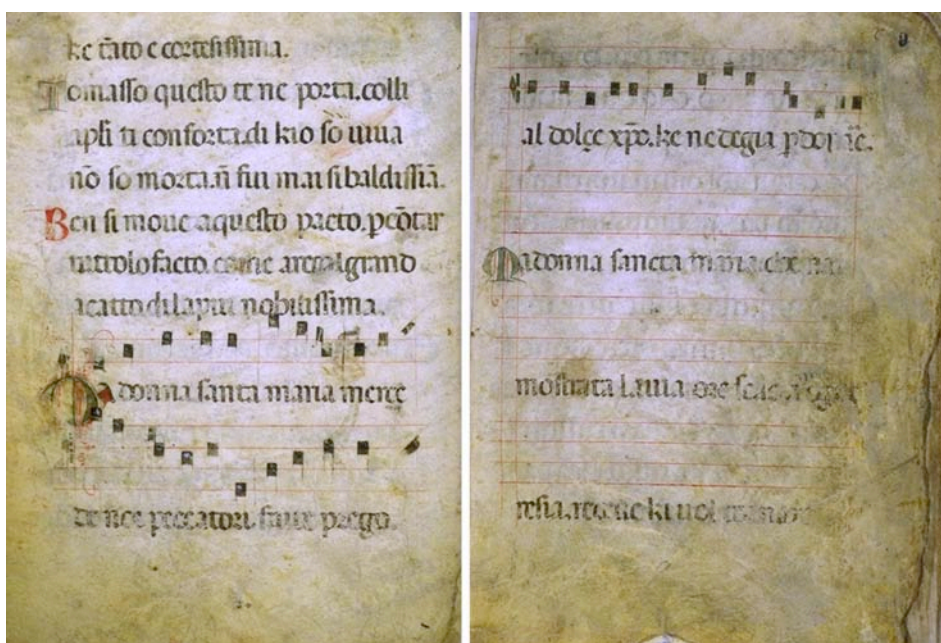 ke tāto e cortesissima.
Tomasso questo te ne porta. colli
apl̄i ti conforta. di kio sō uiua
nō so morta. n̄ fui mai si baldissīa.
Ben si moue a questo pacto. p cōtar
tuttolo facto. come
acatto di la piu nobilissima.
Madonna santa maria merce
de noe peccatori. faite prego.
al dolçe xp̄o. ke ne degia pdonare.
Madonna sancta maria. che n
mostrata la uia
resia. ki uol